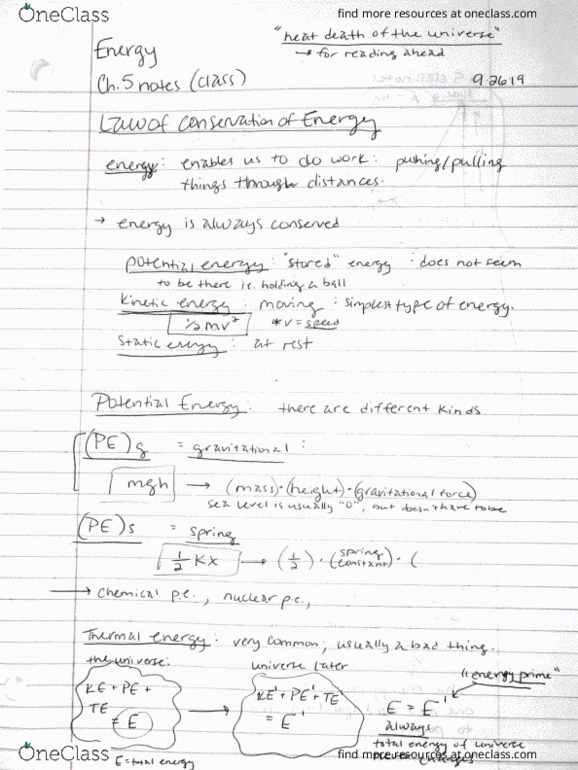 OneClass
find more resources at oneclass.com
"heat death of the universe"
→ for reading ahead
Energy
Ch. 5 notes (class)
9.26.19
Law of Conservation of Energy
energy: enables us to do work: pushing/pulling
things through distances.
→ energy is always conserved
potential energy: "stored" energy · does not seem
to be there i.e. holding a ball
kinetic energy: moving: simplest type of energy.
½mv² *v = speed
Static energy: at rest
Potential Energy: there are different kinds
(PE)g = gravitational:
mgh → (mass)·(height)·(gravitational force)
sea level is usually "0", but doesn't have to be
(PE)s = spring
1/2 Kx → (1/2)·(spring constant)·(
→ chemical p.e., nuclear p.e.,
Thermal energy: very common, usually a bad thing.
the universe: universe later
"energy prime"
KE + PE +
TE
= E
→
KE' + PE' + TE'
= E'
E = E'
always
total energy of universe
E = total energy
OneClass
find more resources at oneclass.com